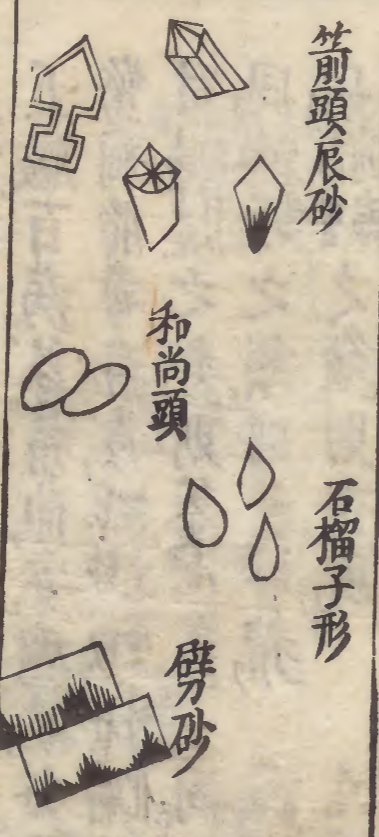 箭頭辰砂
和尚頭
石榴子形
劈砂